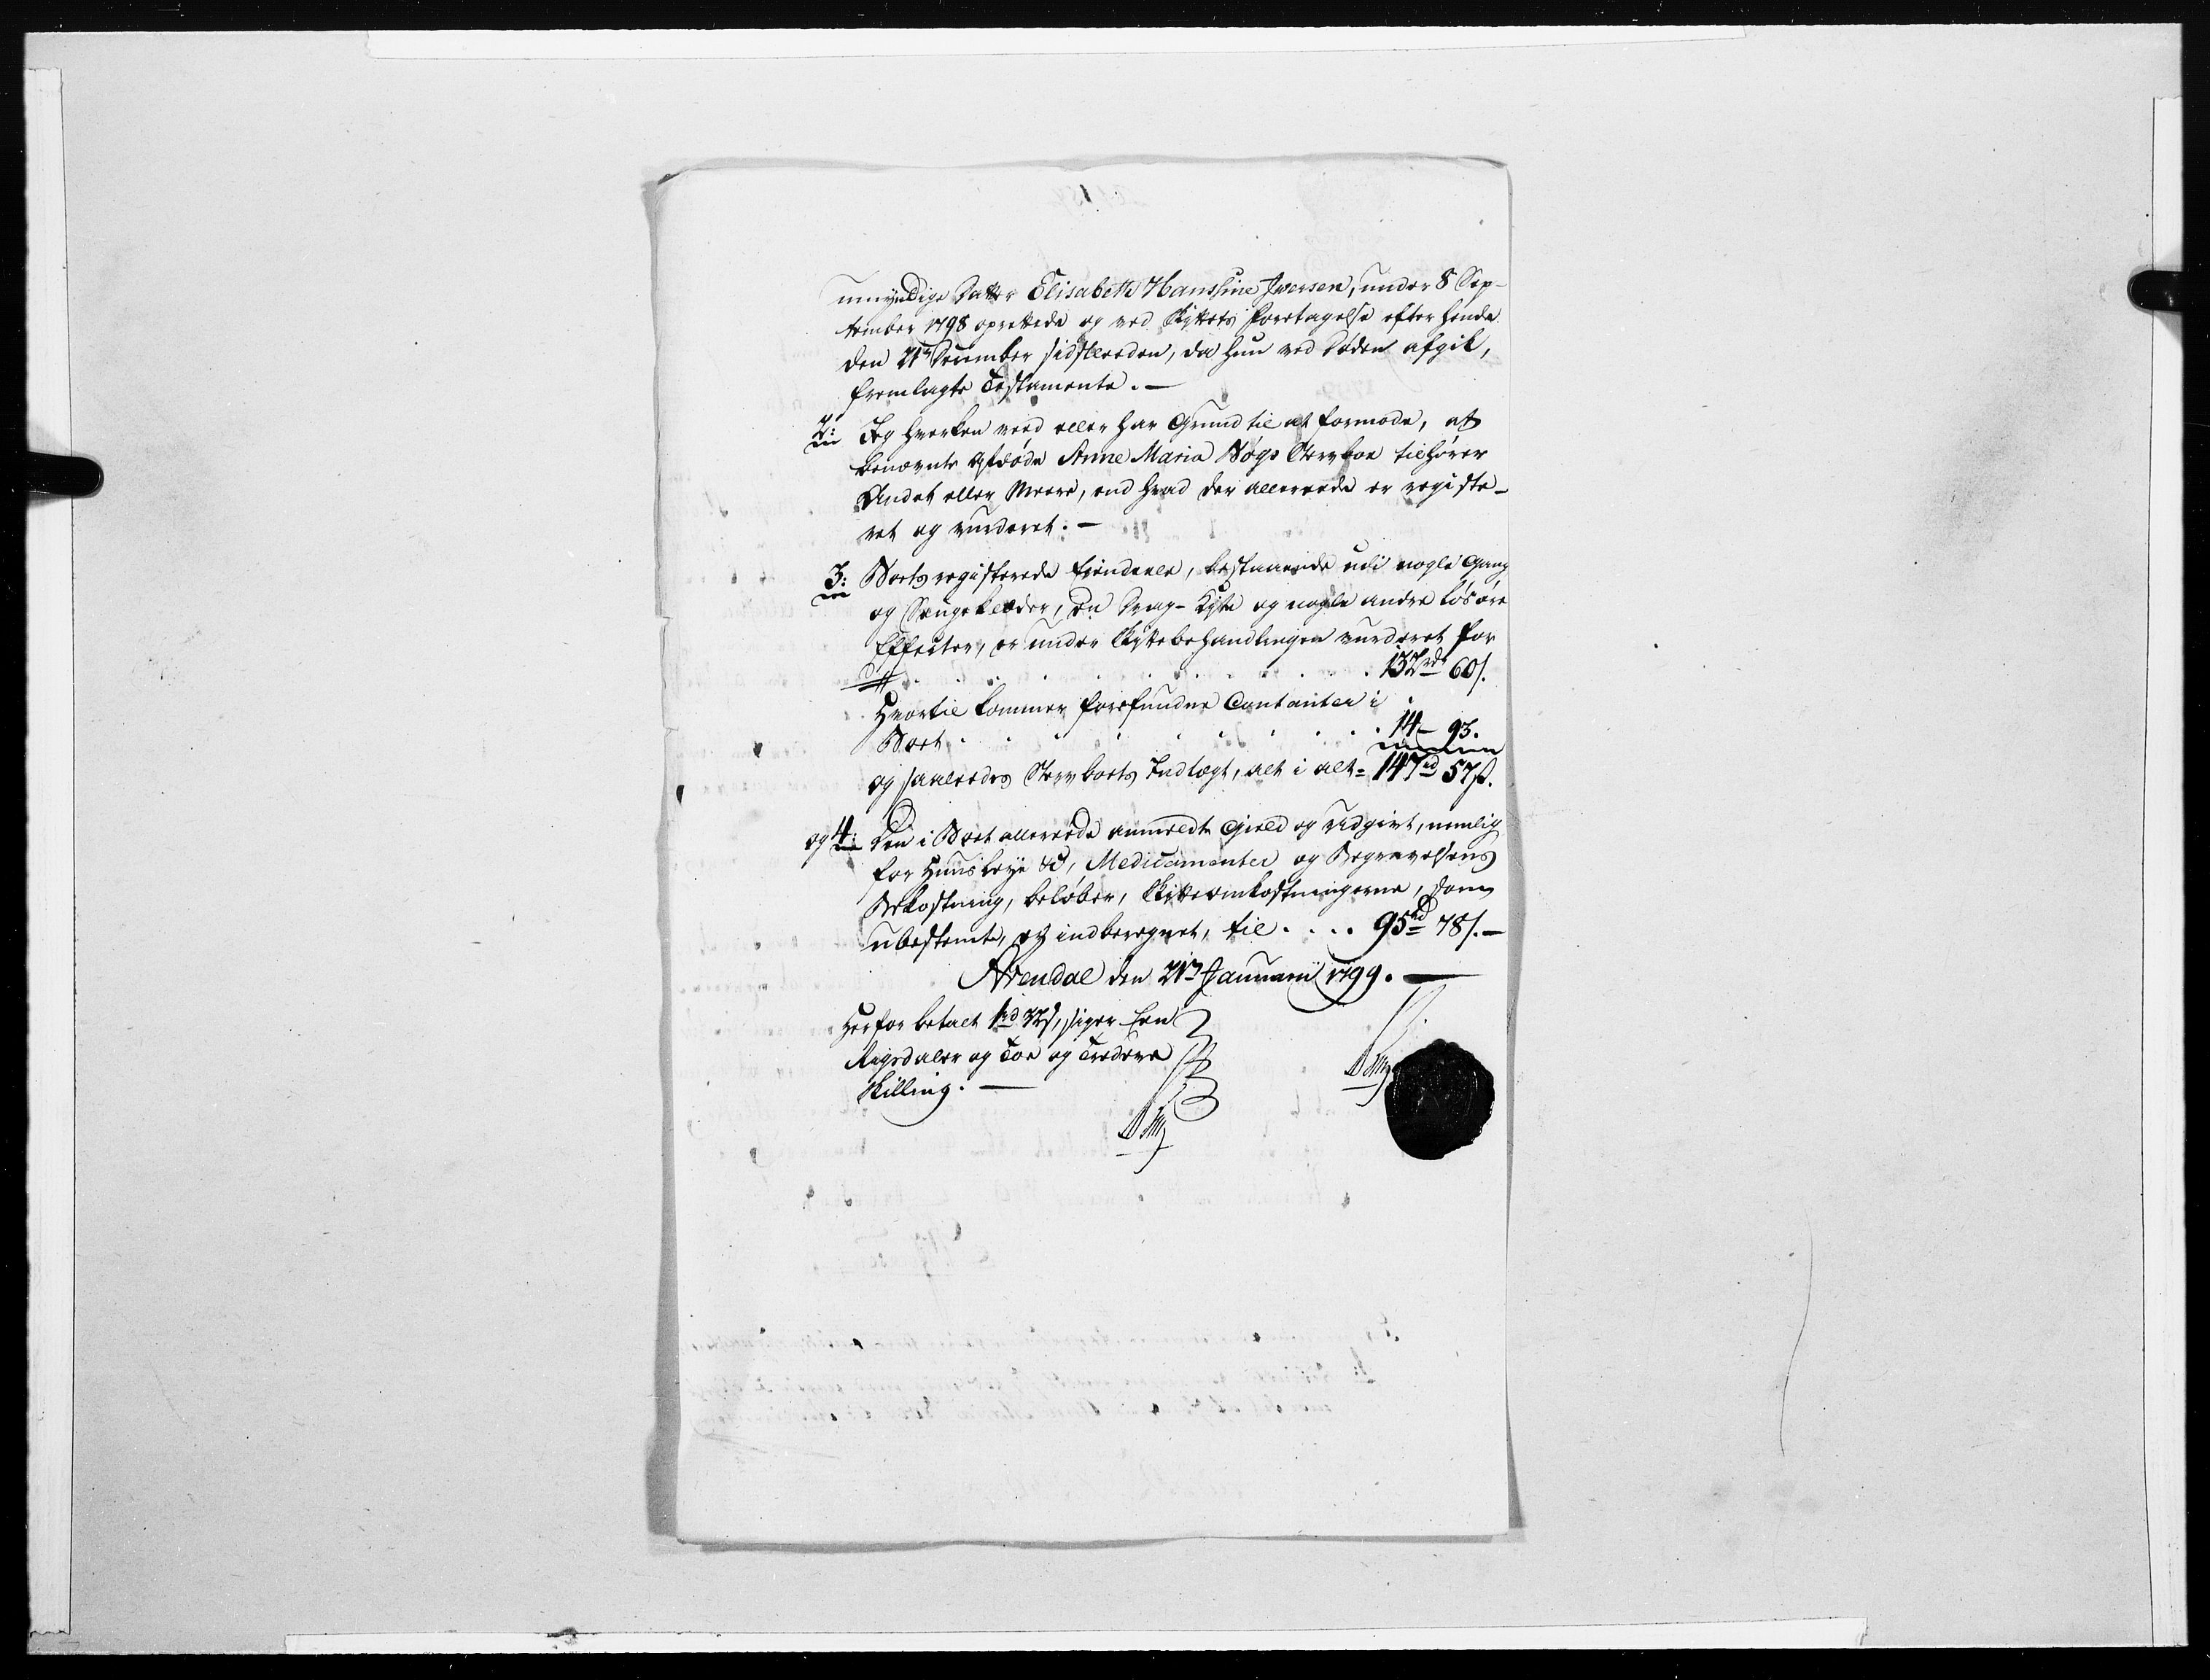 umyndige Datter Elisabeth Hanssine Iwersen, under 8 Sep-
tember 1798 oprettede og ved Skiftets Foretagelse efter hende
den 21de December sidstleeden, da hun ved Døden afgik,
fremlagte Testamente. —
2: Jeg hverken veed eller har Grund til at formode, at
benævnte afdøde Anne Maria Bøgs Stervboe tilhører
Andet eller Meere, end hvad der allereede er registe-
ret og vurderet. —
3: Boets registerede Eiendeele, bestaaende udi nogle Gang
og Sengeklæder, en Drag-Kiste og nogle andre løsøre
Effecter, er under Skiftebehandlingen vurderet for
. . . . . . . . . 132rd 60s.
Hvortil kommer forefundne Contanter i
Boet . . . . . . . . . 14 - 93.
og saaleedes Stervboets Indtægt, alt i alt = 147rd 57s.
og 4: Den i Boet allereede anmeldte Gield og Udgivt, nemlig
for Huusleye &c, Medicamenter og Begravelsens
Bekostning, beløber, Skifteomkostningerne, som
ubestemte, ey indberegnet, til . . . . 95rd 78s. —
Arendal den 21de Januarii 1799. —
Herfor betalt 1rd 32s, siger Een
Rigsdaler og Toe og Tredeve
Skilling. —